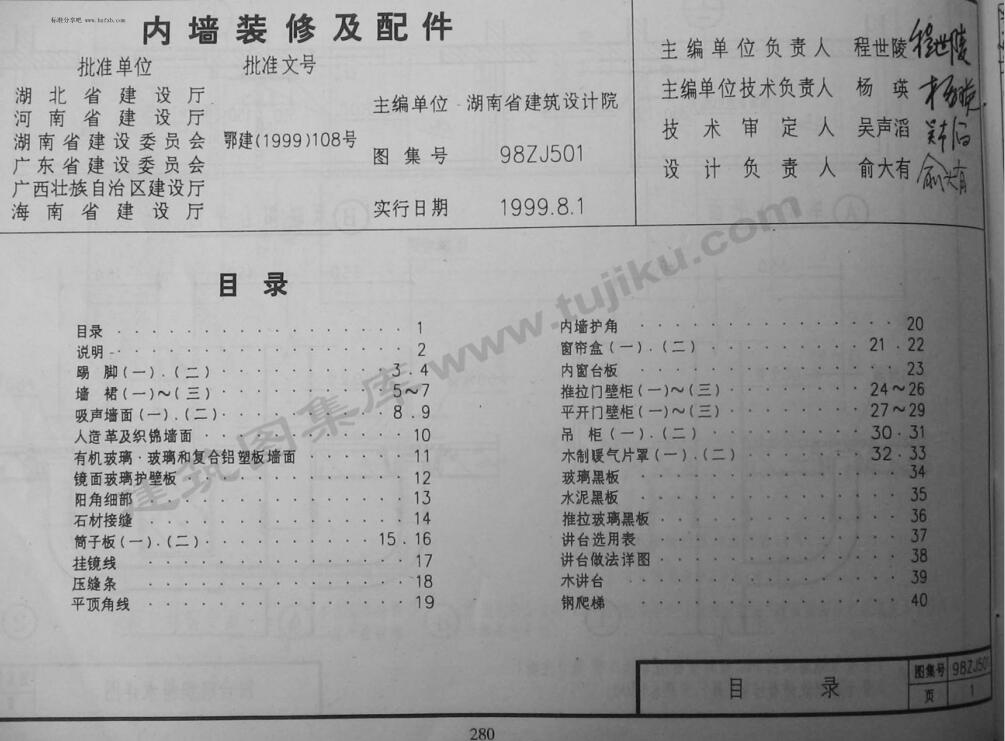 标准分享吧 www.bzfxb.com
内墙装修及配件
批准单位 批准文号
湖北省建设厅
河南省建设厅
湖南省建设委员会 鄂建(1999)108号
广东省建设委员会
广西壮族自治区建设厅
海南省建设厅
主编单位 湖南省建筑设计院
图集号 98ZJ501
实行日期 1999.8.1
主编单位负责人 程世陵 程世陵
主编单位技术负责人 杨瑛 杨瑛
技术审定人 吴声滔
设计负责人 俞大有 俞大有
目录
目录 1
说明 2
踢脚(一).(二) 3.4
墙裙(一)~(三) 5~7
吸声墙面(一).(二) 8.9
人造革及织锦墙面 10
有机玻璃·玻璃和复合铝塑板墙面 11
镜面玻璃护壁板 12
阳角细部 13
石材接缝 14
筒子板(一).(二) 15.16
挂镜线 17
压缝条 18
平顶角线 19
内墙护角 20
窗帘盒(一).(二) 21.22
内窗台板 23
推拉门壁柜(一)~(三) 24~26
平开门壁柜(一)~(三) 27~29
吊柜(一).(二) 30.31
木制暖气片罩(一).(二) 32.33
玻璃黑板 34
水泥黑板 35
推拉玻璃黑板 36
讲台选用表 37
讲台做法详图 38
木讲台 39
钢爬梯 40
建筑图集库 www.tujiku.com
目录
图集号 98ZJ501
页 1
280